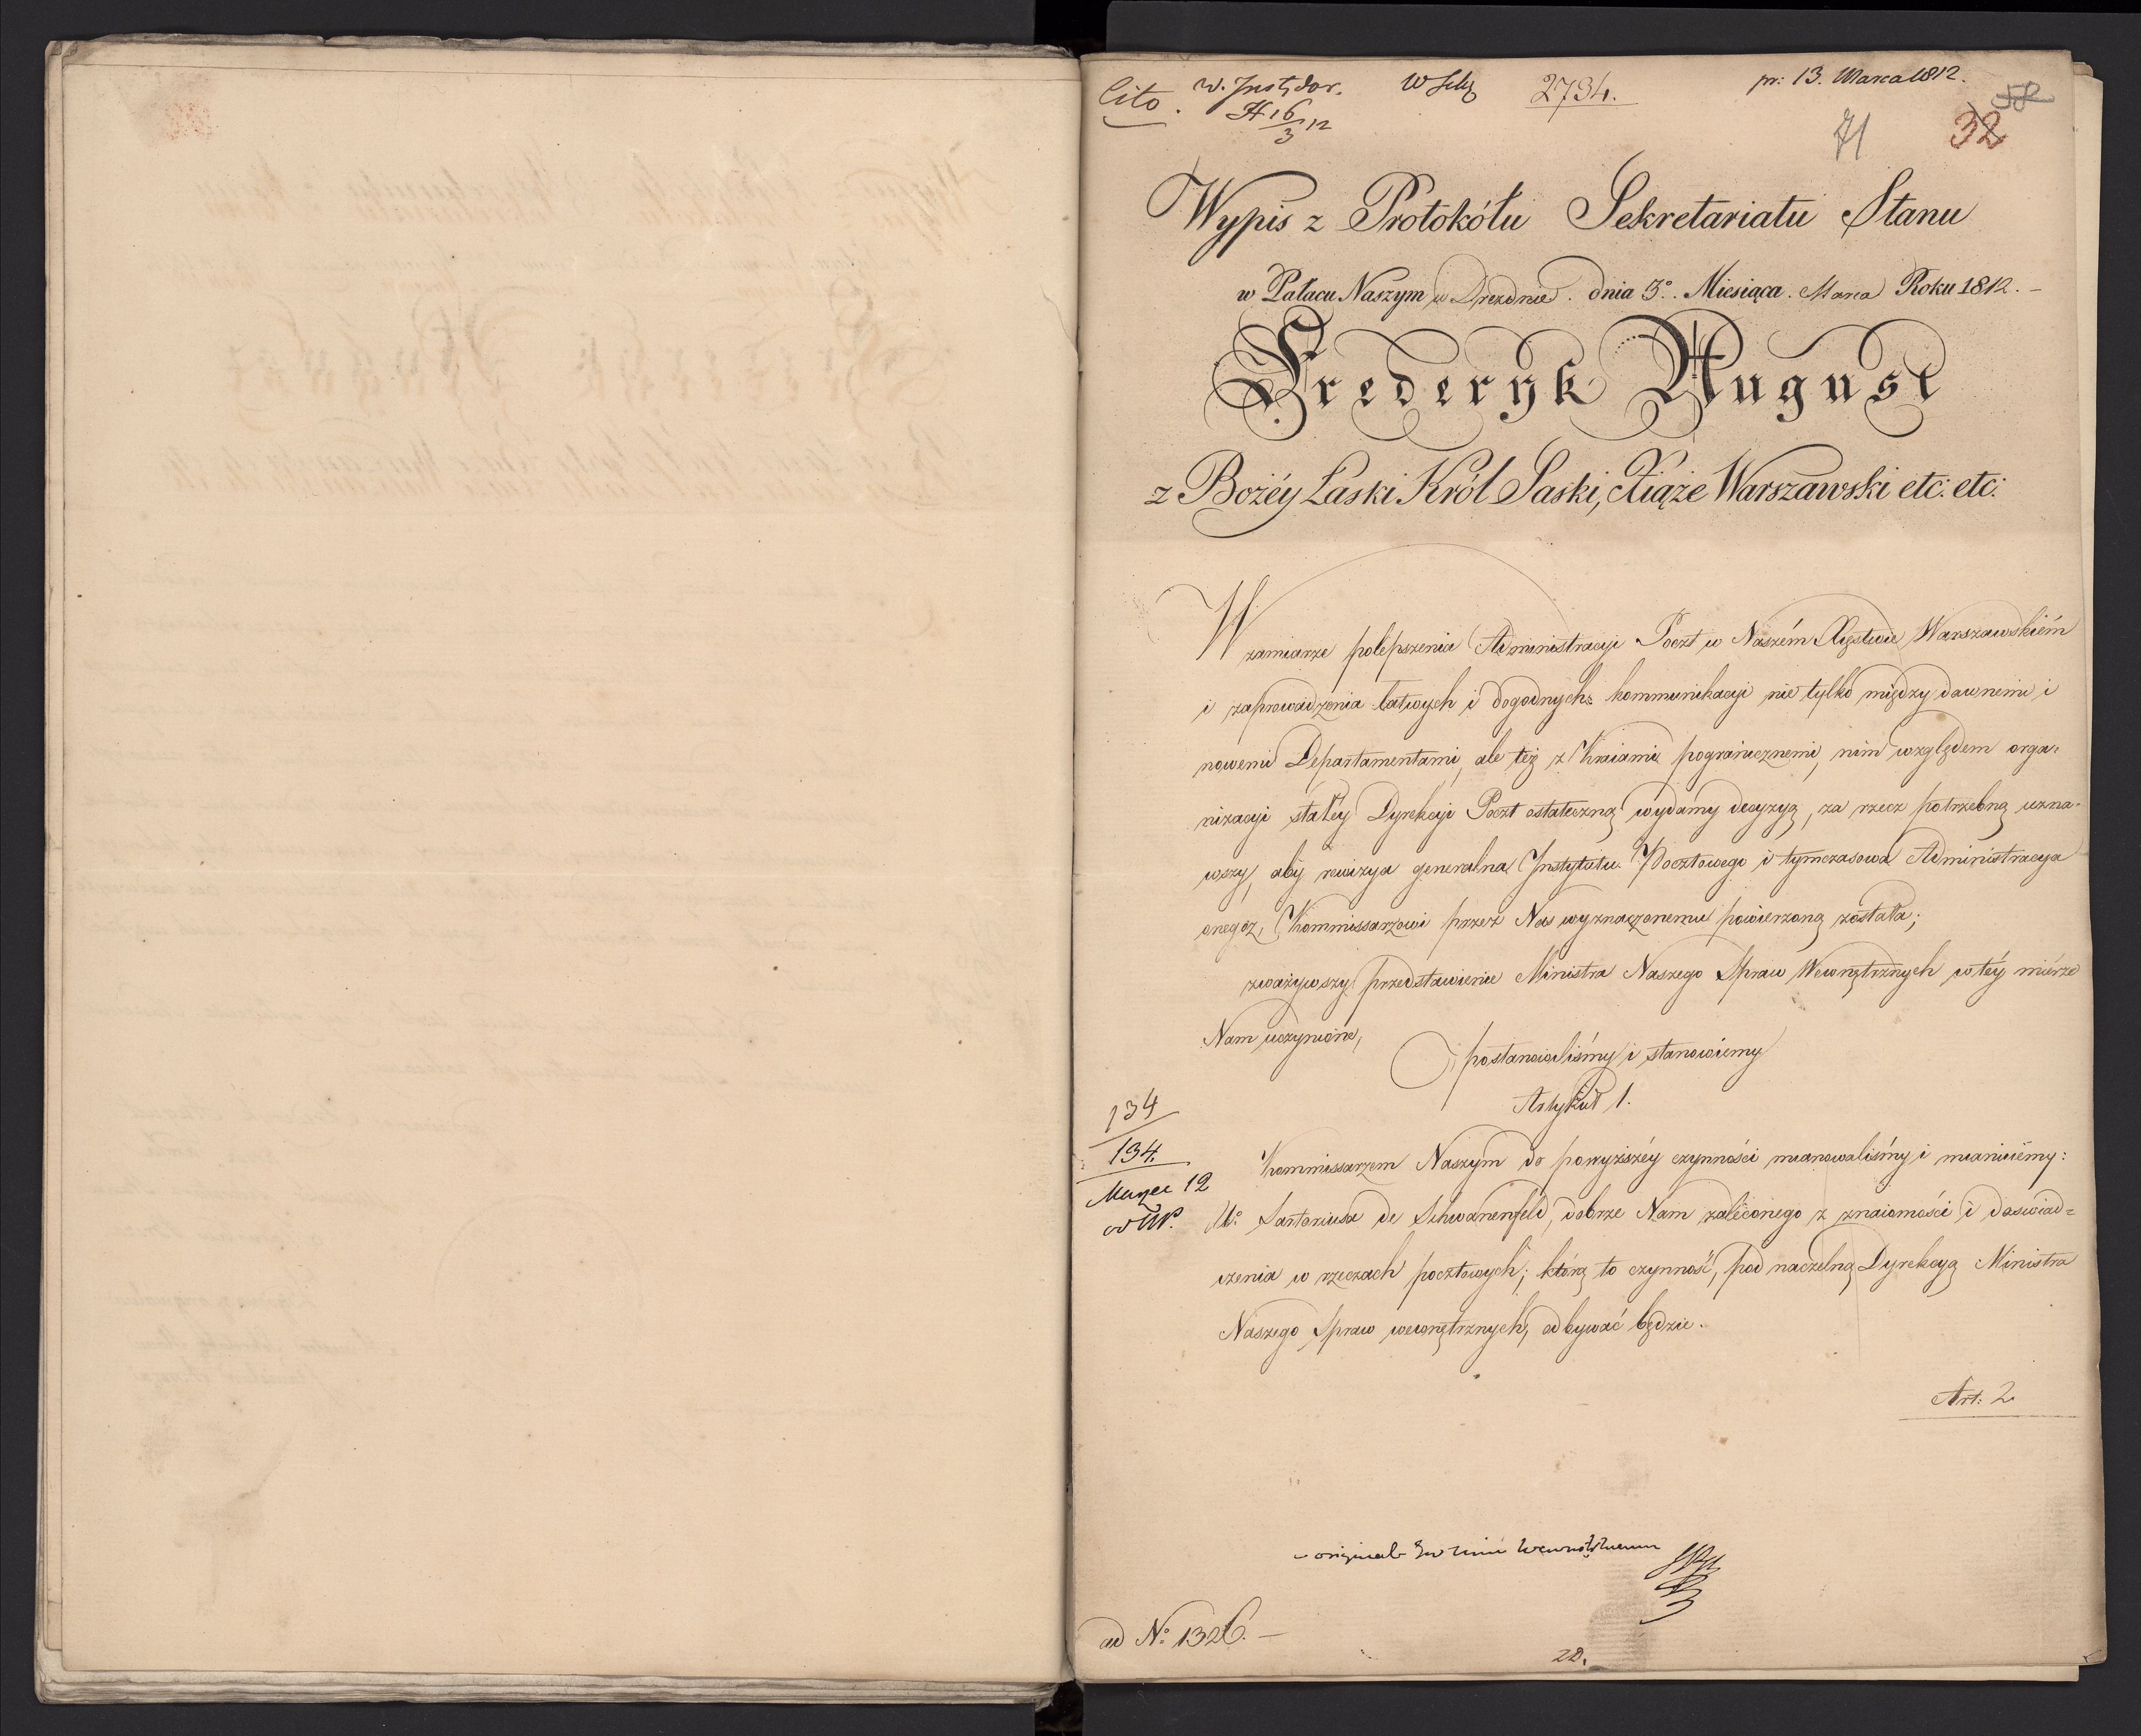 Cito.
2734.
pr: 13. Marca 1812.
58
71
32
16
3 12
Wypis z Protokółu Sekretariatu Stanu
w Pałacu Naszym w Dreznie. dnia 3º. Miesiąca. Marca Roku 1812. –
Fryderyk August
z Bożéy Łaski Król Saski, Xiąże Warszawski etc: etc:
W zamiarze polepszenia Administracyi Poczt w Naszém Xięstwie Warszawskiém
i zaprowadzenia łatwych i dogodnych kommunikacyi nie tylko między dawnemi i
nowemi Departamentami, ale też z Kraiami pogranicznemi, nim względem orga=
nizacyi stałey Dyrekcyi Poczt ostateczną wydamy decyzyą, za rzecz potrzebną uzna=
wszy, aby rewizya generalna Instytutu Pocztowego i tymczasowa Administracya
onegoż, Kommissarzowi przez Nas wyznaczonemu powierzoną została;
zważywszy przedstawienie Ministra Naszego Spraw Wewnętrznych w téy mierze
Nam uczynione,
postanowiliśmy i stanowiemy
Artykuł 1.
134
134.
Marzec 12
Kommissarzem Naszym do powyższéy czynności mianowaliśmy i mianuiemy:
Uº. Sartoriusa de Schwanenfeld, dobrze Nam zaleconego z znaiomości i doswiad=
czenia w rzeczach pocztowych; którą to czynność, pod naczelną Dyrekcyą Ministra
Naszego Spraw wewnętrznych, odbywać będzie.
Art: 2
original
ad Nº 1326. –
28.